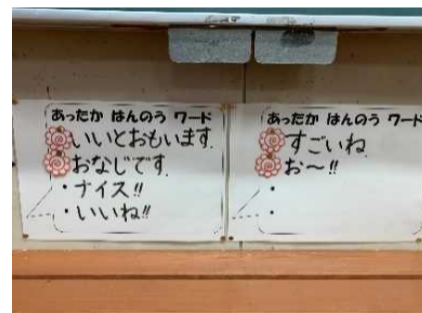 あったか はんのう ワード
いいとおもいます.
おなじです.
・ナイス!!
・いいね!!
あったか はんのう ワード
すごいね
お〜!!
・
・